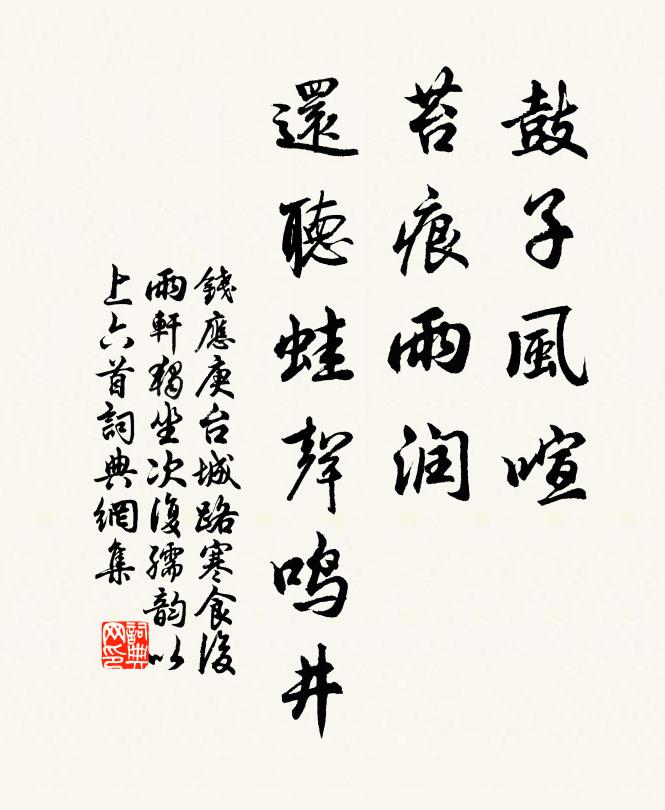 鼓子風喧
苔痕雨润
還聽蛙聲鳴井
錢應庚台城路寒食後
雨軒獨坐次復孺韵以
上六首詞典網集
詞典网印